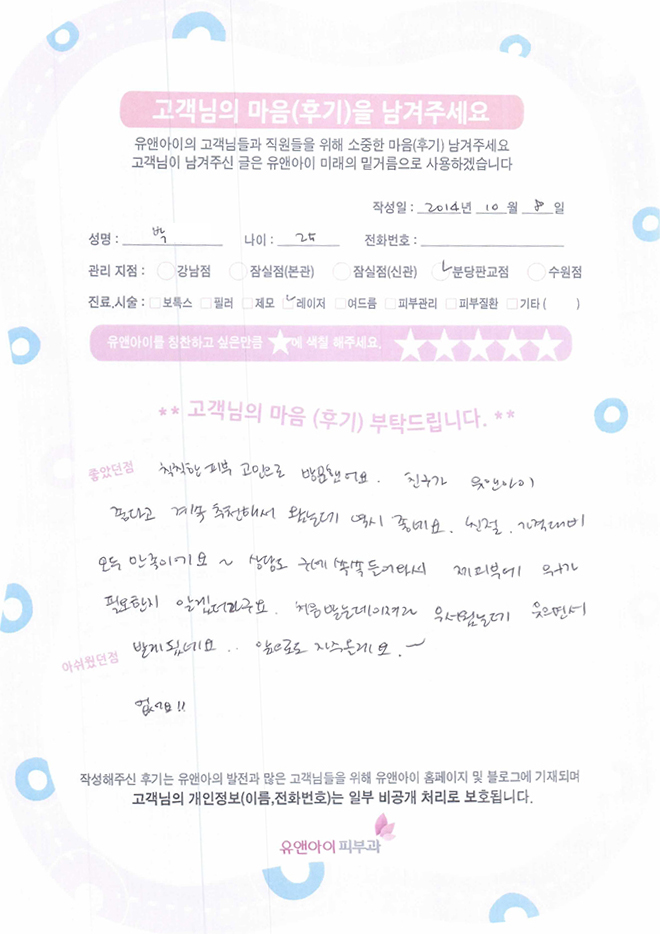 고객님의 마음(후기)을 남겨주세요
유앤아이의 고객님들과 직원들을 위해 소중한 마음(후기) 남겨주세요
고객님이 남겨주신 글은 유앤아이 미래의 밑거름으로 사용하겠습니다
작성일 : 2014년 10월 8일
성명 : 박 나이 : 25 전화번호 :
관리 지점 : 강남점 잠실점(본관) 잠실점(신관) 분당판교점 수원점
진료,시술 : 보톡스 필러 제모 레이저 여드름 피부관리 피부질환 기타 ( )
유앤아이를 칭찬하고 싶은만큼 ★에 색칠 해주세요. ★★★★★
** 고객님의 마음 (후기) 부탁드립니다. **
좋았던점 칙칙한 피부 고민으로 방문했어요. 친구가 유앤아이
좋다고 계속 추천해서 왔는데 역시 좋네요. 친절, 가격대비
모두 만족이에요 ~ 상담도 귀에 쏙쏙 들어와서 제피부에 뭐가
필요한지 알겠더라구요. 처음받는레이저라 무서웠는데 웃으면서
받게됬네요.. 앞으로도 자주올게요.~
아쉬웠던점
없어요!!
작성해주신 후기는 유앤아의 발전과 많은 고객님들을 위해 유앤아이 홈페이지 및 블로그에 기재되며
고객님의 개인정보(이름,전화번호)는 일부 비공개 처리로 보호됩니다.
유앤아이피부과